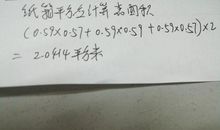 纸箱平方立计算 表面积
(0.59×0.57+0.59×0.59+0.59×0.57)×2
= 2.0414平方米